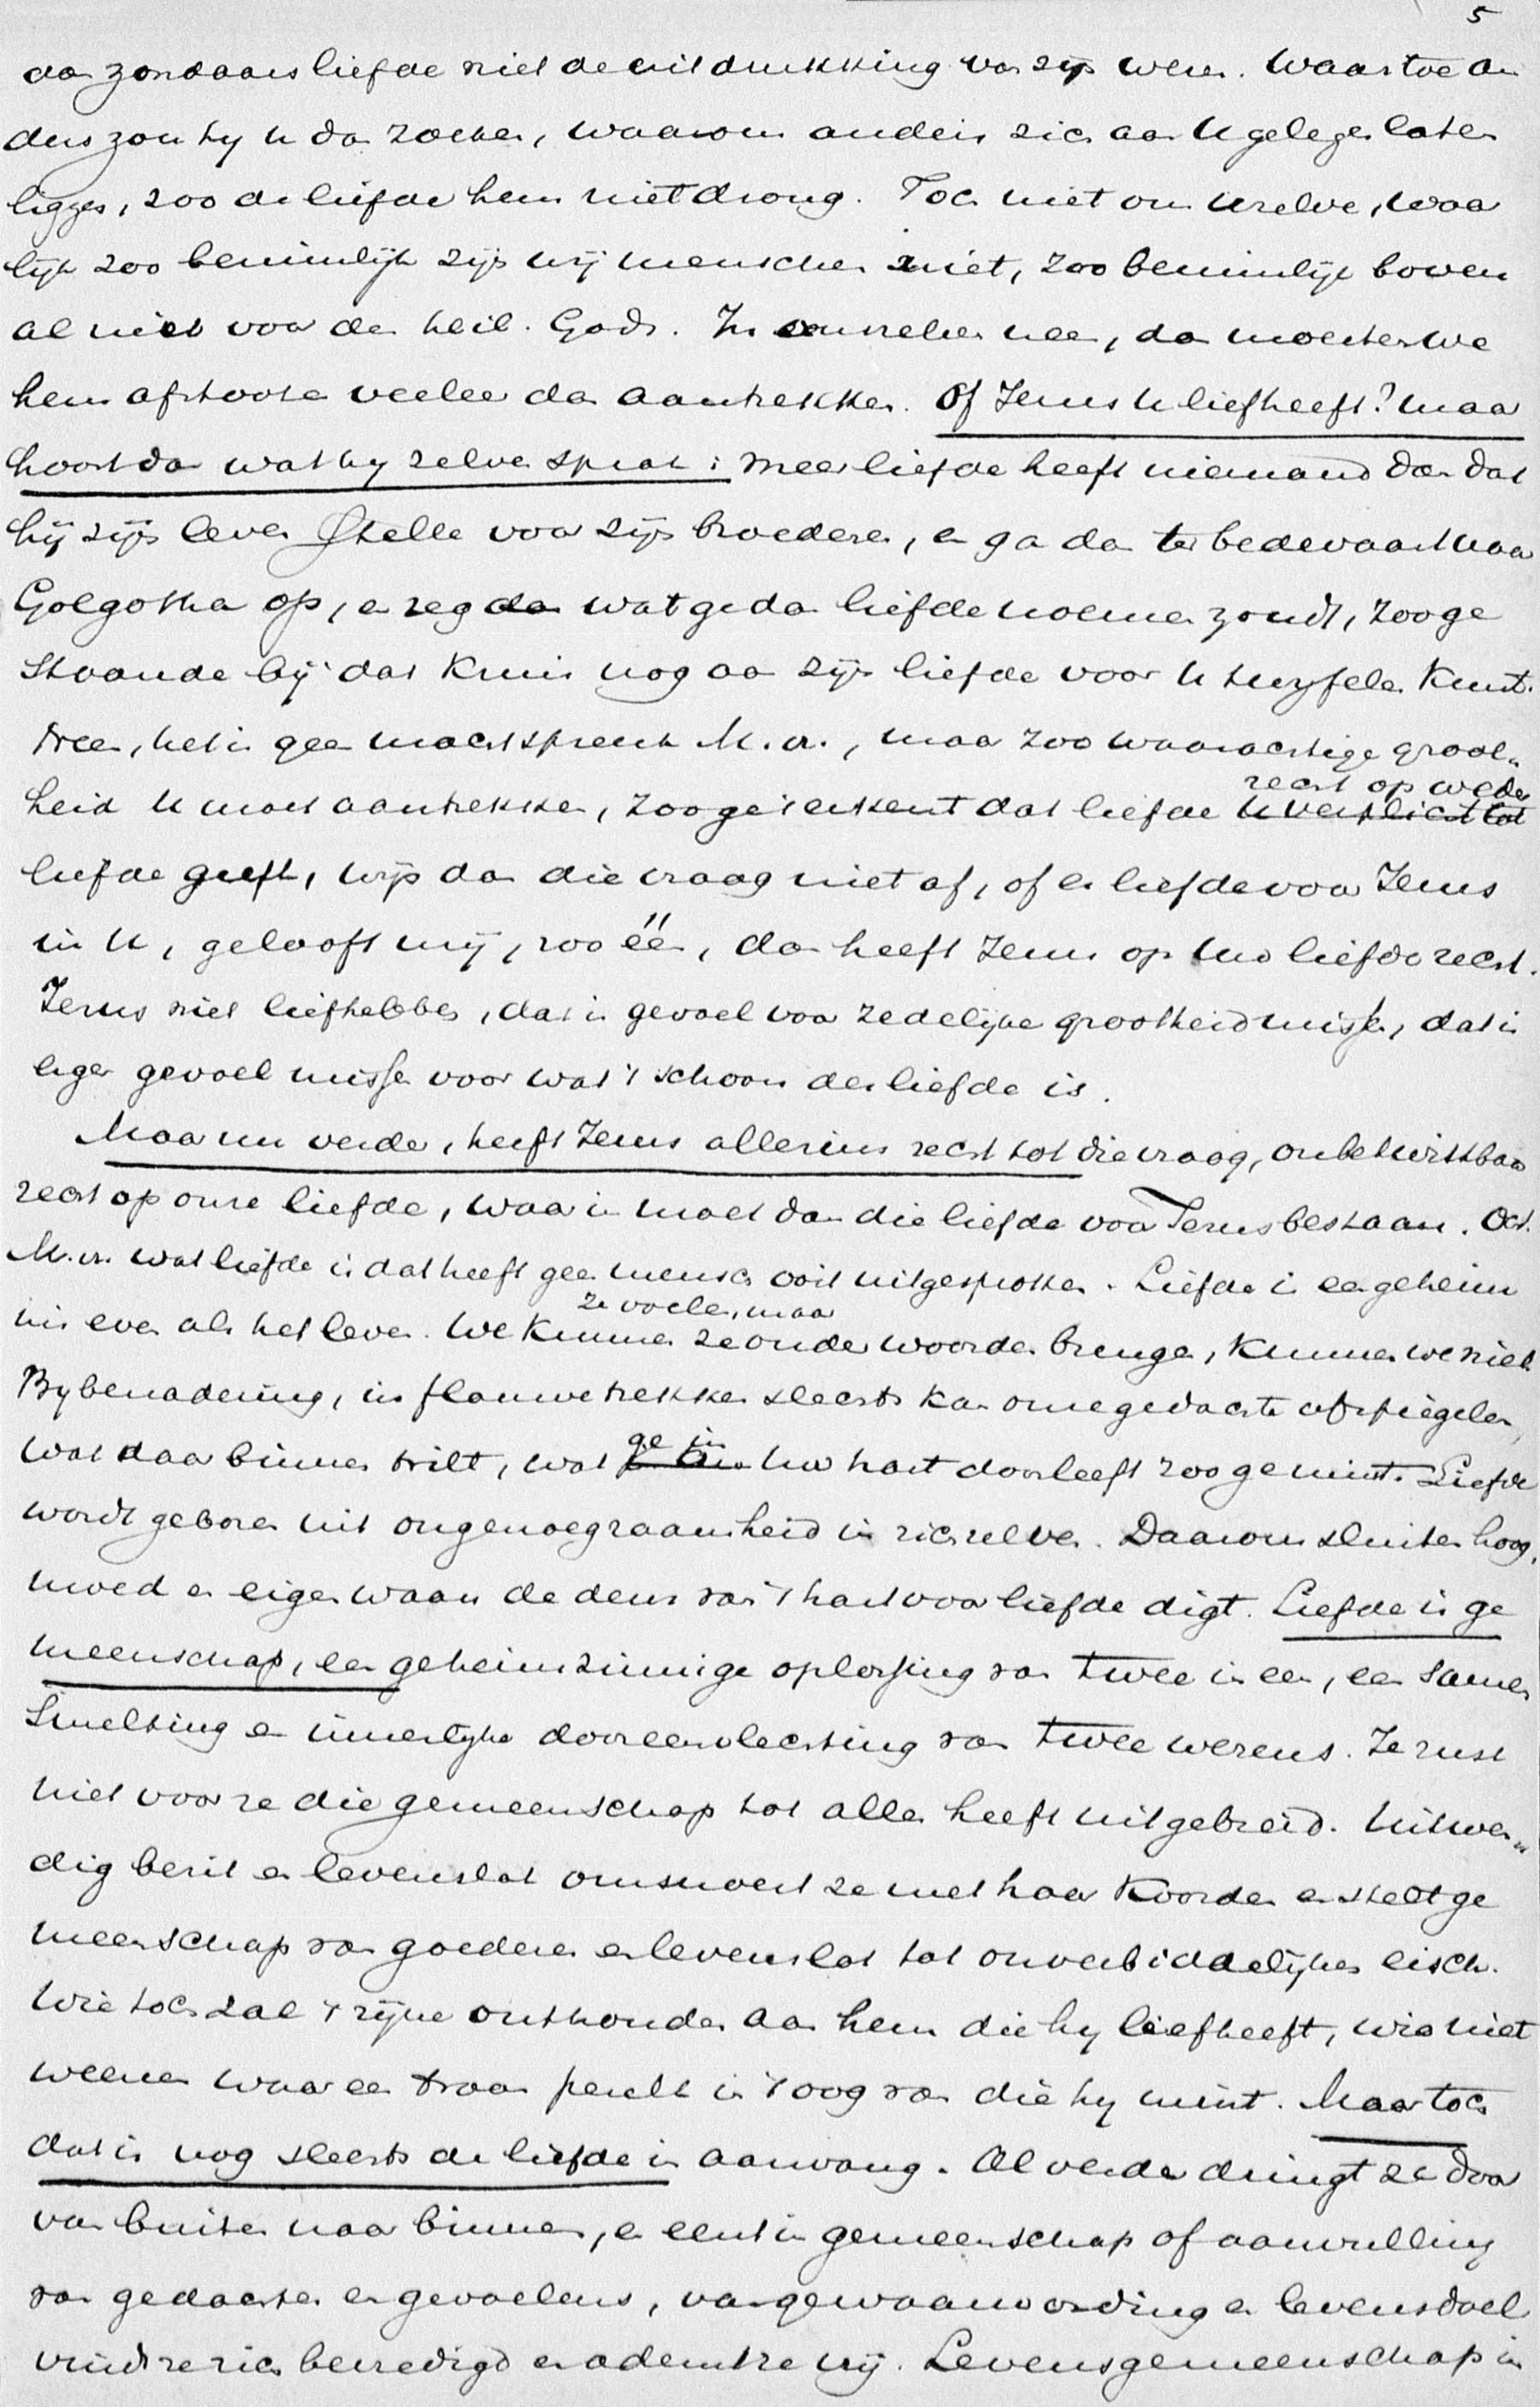 5
dan zondaarsliefde niet de uitdrukking van zijn wezen. Waartoe an
ders zou hy U dan zoeken, waarom anders zich aan U gelegen laten
liggen, zoo de liefde hem niet drong. Toch niet om Uzelve, waar
lijk zoo beminlijk zijn wij menschen niet, zoo beminlijk boven
al niet voor den heil. Gods. In onszelven neen, dan moesten we
hem afstooten veeleer dan aantrekken. Of Jezus U liefheeft? maar
hoort dan wat hy zelve sprak: meer liefde heeft niemand dan dat
hij zijn leven stelle voor zijn broederen, en ga dan ter bedevaart naar
Golgotha op, en zeg dan wat ge dan liefde noemen zoudt, zoo ge
staande bij dat Kruis nog aan zijn liefde voor U twyfelen Kunt.
Neen, het is geen machtspreuk M. vr., maar zoo waarachtige groot„
heid U moet aantrekken, zoo ge 't erkent dat liefde recht op weder
U verplicht tot
liefde geeft, wijs dan die vraag niet af, of er liefde voor Jezus
in U, gelooft mij, zoo één, dan heeft Jezus op Uw liefde recht.
Jezus niet liefhebben, dat is gevoel voor zedelijke grootheid missen, dat is
eigen gevoel missen voor wat 't schoon der liefde is.
Maar nu verder, heeft Jezus alleszins recht tot die vraag, onbetwistbaar
recht op onze liefde, waar in moet dan die liefde voor Jezus bestaan. Och
M. vr. wat liefde is dat heeft geen mensch ooit uitgesproken. Liefde is een geheim
ze voelen, maar
nis even als het leven. We Kunnen ze onder woorden brengen, Kunnen we niet.
By benadering, in flauwe trekken slechts kan onze gedachte afspiegelen,
ge in
wat daar binnen trilt, wat Uw hart doorleeft zoo ge mint. Liefde
wordt geboren uit ongenoegzaamheid in zichzelve. Daarom sluiten hoog„
moed en eigenwaan de deur van 't hart voor liefde digt. Liefde is ge
meenschap, een geheimzinnige oplossing van twee in een, een samen
smelting en innerlyke dooreenvlechting van twee wezens. Ze rust
niet voor ze die gemeenschap tot alles heeft uitgebreid. Uitwen„
dig bezit en levenslot omsnoert ze met haar Koorden en stelt ge
meenschap van goederen en levenslot tot onverbiddelijken eisch.
Wie toch zal 't zijne onthouden aan hem die hy liefheeft, wie niet
weenen waar een traan perelt in 't oog van die hy mint. Maar toch
dat is nog slechts de liefde in aanvang. Al verder dringt ze door
van buiten naar binnen, en eerst in gemeenschap of aanvulling
van gedachten en gevoelens, van gewaarwording en levensdoel
vindt ze zich bevredigd en ademt ze vrij. Levensgemeenschap is